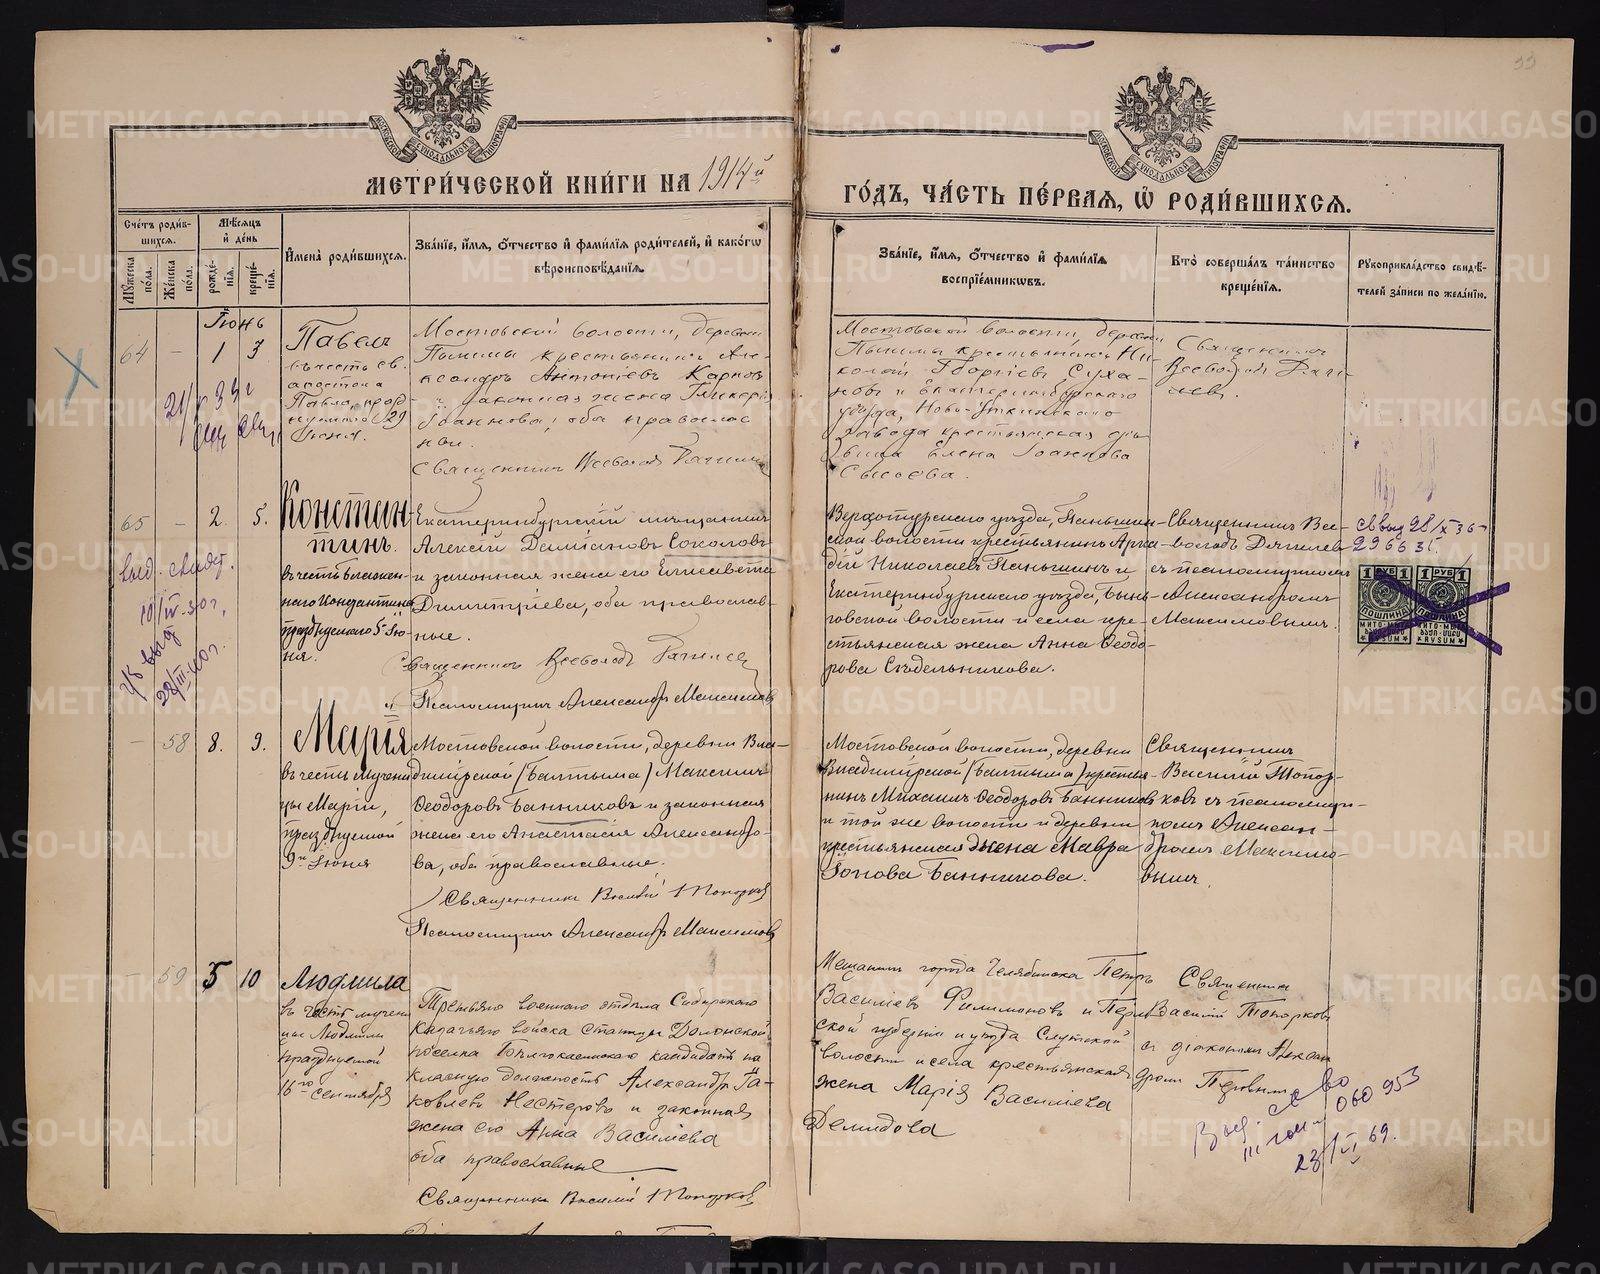 МЕТРИ́ЧЕСКОЙ КНИ́ГИ НА 1914й
ГО́ДЪ, ЧА́СТЬ ПЕ́РВАЯ, Ѡ҆ РОДИ́ВШИХСЯ.
Сче́тъ роди́в-
шихся.
Мѣ́сяцъ
и҆ де́нь
Мꙋ́жеска
по́ла.
Же́нска
по́ла.
рожде́-
нїя.
креще́-
нїя.
И҆мена̀ роди́вшихся.
Зва́нїе, и҆́мя, ѻ҆́тчество и҆ фами́лїя роди́телей, и҆ како́гѡ
вѣроисповѣ́данїя.
Зва́нїе, и҆́мя, ѻ҆́тчество и҆ фами́лїя
воспрїе́мникѡвъ.
Кто̀ соверша́лъ та́инство
креще́нїя.
Рꙋкоприкла́дство свидѣ́-
телей за́писи по жела́нїю.
Іюнь
64 – 1 3
Павелъ
въ честь св.
апостола
Павла, празд
нуемаго 29
Іюня.
Мостовской волости, деревни
Пышмы крестьянинъ Але-
ксандръ Антоніевъ Карпов
и законная жена Гликерія
Іоаннова, оба православ
ные.
Священникъ Всеволод
Мостовской волости, деревни
Пышмы крестьянинъ Ни-
колай Георгіев Суха-
нов и Екатеринбургскаго
уѣзда, Ново-Уткинскаго
завода крестьянская дѣ-
вица Елена Іоаннова
Сысоева.
Священникъ
Всеволод
65 – 2. 5.
Констан-
тинъ.
въ честь блажен-
наго Константина
празднуемаго 5 Ію-
ня.
Екатеринбургскій мѣщанинъ
Алексій Даміановъ Соколовъ
и законная жена его Елисавета
Димитріева, оба православ-
ные.
Священникъ Всеволодъ
Псаломщикъ Александръ Максимовъ
Верхотурскаго уѣзда, Паньшин-
ской волости крестьянинъ Арка-
дій Николаевъ Паньшинъ и
Екатеринбургскаго уѣзда, Бынь-
говской волости и села кре-
стьянская жена Анна Ѳеодо-
рова Сѣдельникова.
Священникъ Все-
володъ
съ псаломщикомъ
Александромъ
Максимовымъ.
выд. свидет.
10/IV-30г.
28/III-40г.
св выд 28/X 36
1 РУБ 1
ПОШЛИНА
1 РУБ 1
ПОШЛИНА
– 58 8. 9.
Марія
въ честь мучени
цы Маріи,
празднуемой
9го Іюня
Мостовской волости, деревни Вла-
димірской (Балтыма) Максимъ
Ѳеодоровъ Банниковъ и законная
жена его Анастасія Александро-
ва, оба православные.
Священникъ Василій Топорковъ
Псаломщикъ Александръ Максимовъ
Мостовской волости, деревни
Владимірской (Балтыма) крестья-
нинъ Михаилъ Ѳеодоровъ Банниковъ
и той же волости и деревни
крестьянская жена Мавра
Іопова Банникова.
Священникъ
Василій Топор-
ковъ съ псаломщи-
комъ Алексан-
дромъ Максимо-
вымъ.
– 59 5 10
Людмила
въ честь мучени
цы Людмилы
празднуемой
16го сентября
Третьяго военнаго отдѣла Сибирскаго
Казачьяго войска Станицы Долонской
поселка кандидатъ на
классную должность Александръ Іа-
ковлевъ Нестеровъ и законная
жена его Анна Василіева
оба православные
Священникъ Василій Топорковъ
Мещанинъ города Челябинска Петръ
Василіевъ Филимоновъ и Перм-
ской губерніи и уѣзда Слудской
волости и села крестьянская
жена Марія Василіева
Демидова
Священникъ
Василій Топорковъ
съ діакономъ Алексан
дромъ
Выд. св во
III 060953
23/VI 69.